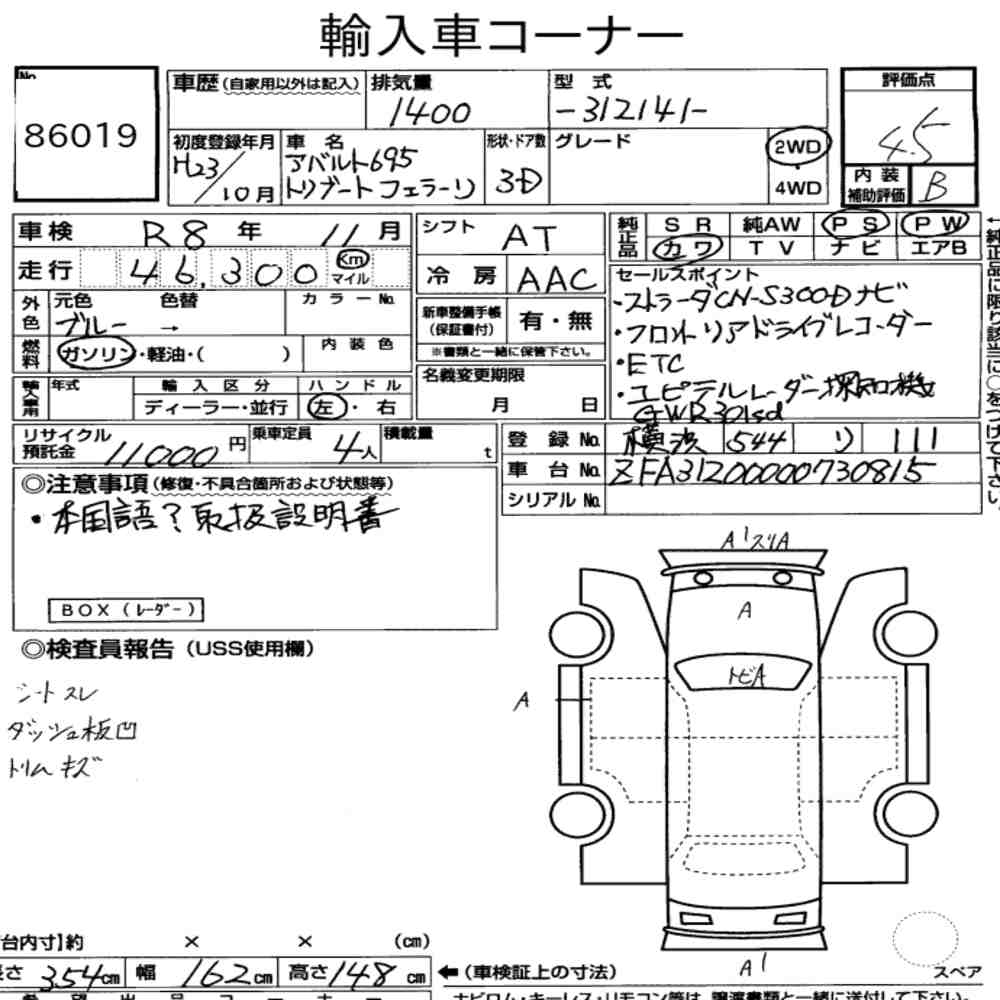 輸入車コーナー
No.
86019
車歴(自家用以外は記入)
排気量
1400
型式
-312141-
評価点
4.5
初度登録年月
H23/10月
車名
アバルト695
トリブートフェラーリ
形状・ドア数
3-D
グレード
2WD
4WD
内装
補助評価
B
車検 R8年 11月
シフト
AT
純正品
SR 純AW PS PW
カワ TV ナビ エアB
走行 46,300 Km
マイル
冷房
AAC
セールスポイント
・ストラーダCN-S300Dナビ
・フロントリアドライブレコーダー
・ETC
・ユピテルレーダー探知機
GWR301sd
外色
元色 色替
ブルー →
カラーNo.
新車整備手帳
(保証書付)
有・無
※書類と一緒に保管下さい。
燃料
ガソリン・軽油・( )
内装色
名義変更期限
月 日
輸入車用
年式
輸入区分
ディーラー・並行
ハンドル
左・右
リサイクル
預託金
11000円
乗車定員
4人
積載量
t
登録No.
横浜 544 り 111
車台No.
ZFA31200000730815
シリアルNo.
◎注意事項(修復・不具合箇所および状態等)
・本国語?取扱説明書
BOX(レーダー)
◎検査員報告(USS使用欄)
シートスレ
ダッシュ板凹
トリムキズ
A1スリA
A
トビA
A
A1
スペア
台内寸】約 × × (cm)
長さ 354cm 幅 162cm 高さ148cm
←(車検証上の寸法)
ナビロム・キーレス・リモコン等は、譲渡書類と一緒に送付して下さい。
←純正品に限り該当に○をつけて下さい。